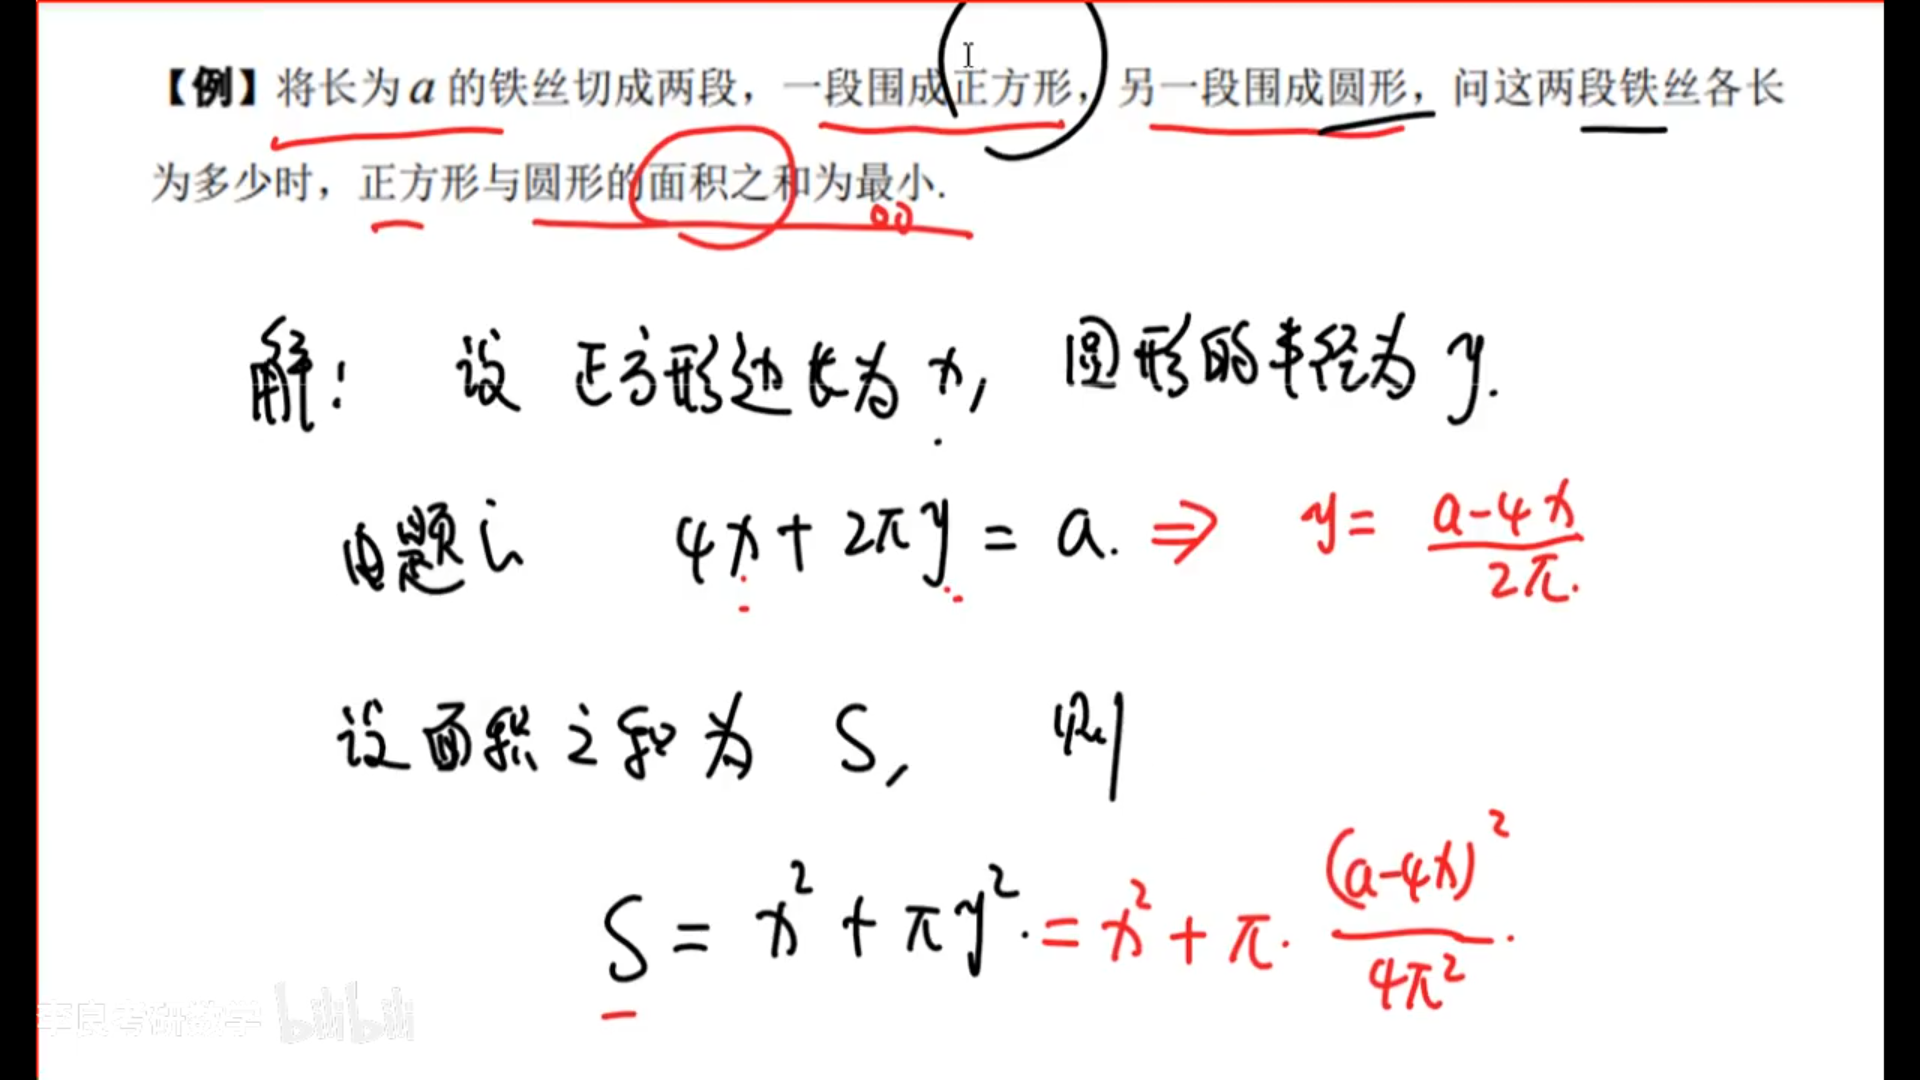 【例】将长为 a 的铁丝切成两段，一段围成正方形，另一段围成圆形，问这两段铁丝各长
为多少时，正方形与圆形的面积之和为最小.
解： 设 正方形边长为 x， 圆形的半径为 y.
由题意 4x + 2πy = a. ⇒ y = (a-4x)/(2π).
设面积之和为 S， 则
S = x² + πy². = x² + π · (a-4x)²/(4π²).
李良考研数学 bilibili